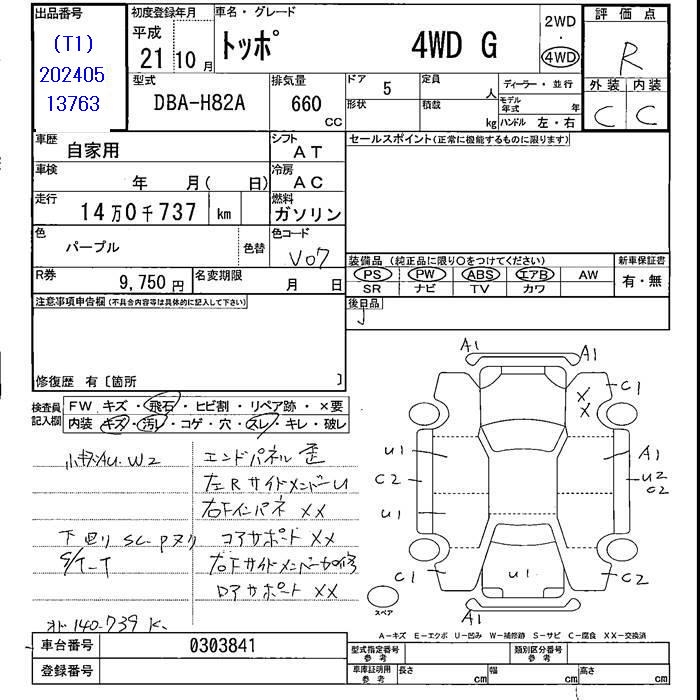 出品番号 初度登録年月 車名・グレード 2WD・4WD 評価点
(T1) 202405 13763
平成 21年 10月 トッポ 4WD G R
型式 排気量 ドア 5 定員 人 ディーラー・並行 外装 内装
DBA-H82A 660 CC 形状 積載 kg モデル年式 年 ハンドル 左・右 C C
車歴 自家用 シフト AT セールスポイント(正常に機能するものに限ります)
車検 年 月( 日) 冷房 AC
走行 14万0千737 km 燃料 ガソリン
色 パープル 色替 色コード V07
装備品 (純正品に限り○をつけてください) 新車保証書
R券 9,750円 名変期限 月 日 PS PW ABS エアB AW 有・無
SR ナビ TV カワ
注意事項申告欄(不具合内容等は具体的に記入して下さい) 後日品
J
修復歴 有〔箇所 〕
検査員記入欄 FW キズ・飛石・ヒビ割・リペア跡・×要
内装 キズ・汚レ・コゲ・穴・スレ・キレ・破レ
小キズAU.W2 エンドパネル 歪
左RサイドメンバーU
右下インパネ XX
下廻り SC-Pヌリ コアサポート XX
S/T-T 右下サイドメンバー加修
ロアサポート XX
オド 140.739 K.
A1 A1
C1
X X
U1 A1
C2 U2 C2
U1
C1 U1 C2
A1
スペア
A-キズ E-エクボ U-凹み W-補修跡 S-サビ C-腐食 XX-交換済
車台番号 0303841 型式指定番号 参考 類別区分番号 参考
登録番号 車庫証明用 参考 長さ cm 幅 cm 高さ cm